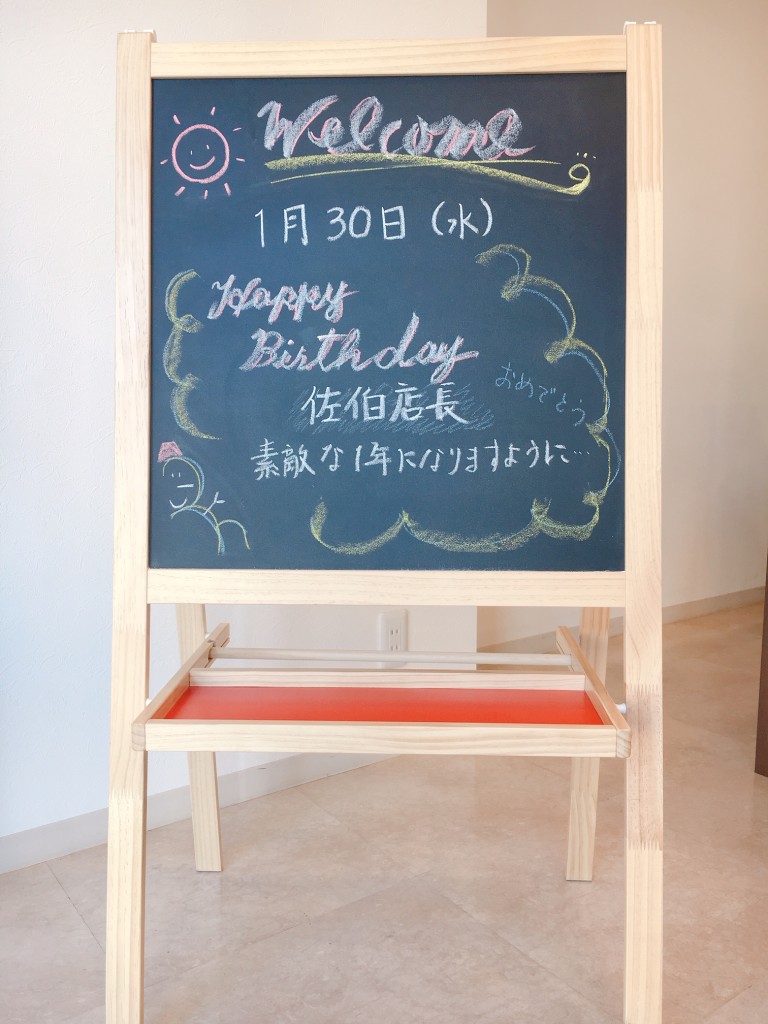 Welcome
1月30日(水)
Happy
Birthday
佐伯店長
おめでとう
素敵な1年になりますように…